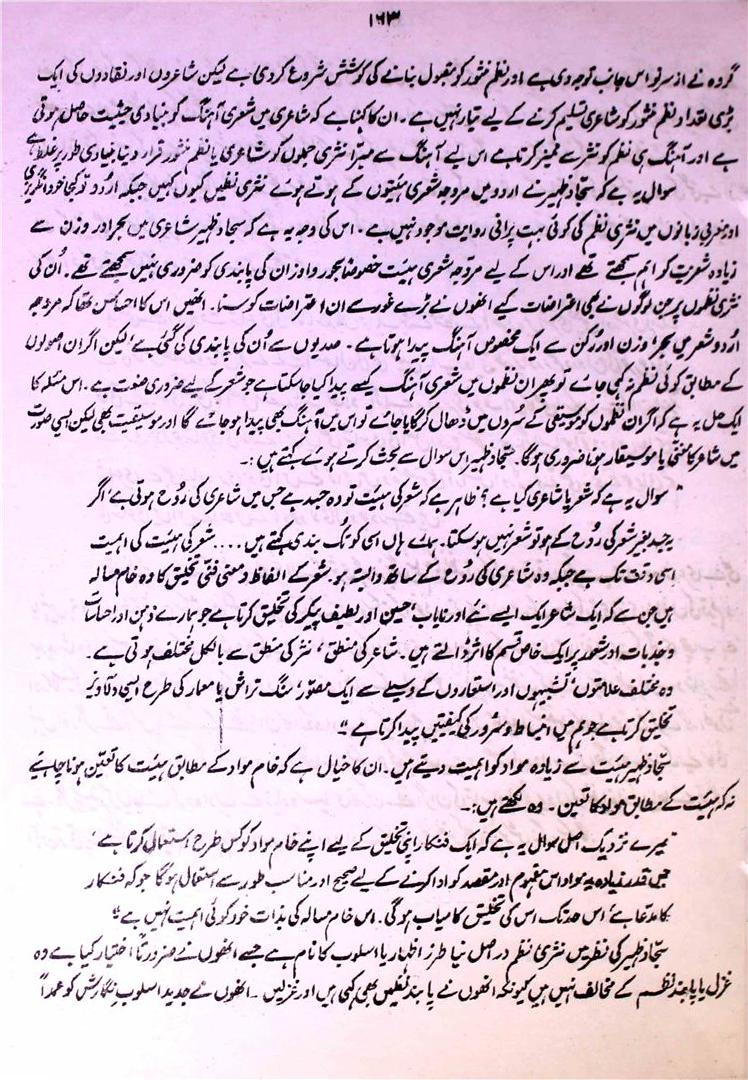 ۱۶۳
گروہ نے ازسرنو اس جانب توجہ دی ہے اور نظم منثور کو مقبول بنانے کی کوشش شروع کر دی ہے لیکن شاعروں اور نقادوں کی ایک
بڑی تعداد نظم منثور کو شاعری تسلیم کرنے کے لیے تیار نہیں ہے۔ ان کا کہنا ہے کہ شاعری میں شعری آہنگ کو بنیادی حیثیت حاصل ہوتی
ہے اور آہنگ ہی نظم کو نثر سے ممیز کرتا ہے اس لیے آہنگ سے مبرّا نثری جملوں کو شاعری یا نظم منثور قرار دینا بنیادی طور پر غلط ہے
سوال یہ ہے کہ سجاد ظہیر نے اردو میں مروجہ شعری ہئیتوں کے ہوتے ہوئے نثری نظمیں کیوں کہیں جبکہ اردو تو کجا خود انگریزی
اور مغربی زبانوں میں نثری نظم کی کوئی بہت پرانی روایت موجود نہیں ہے۔ اس کی وجہ یہ ہے کہ سجاد ظہیر شاعری میں بحر اور وزن سے
زیادہ شعریت کو اہم سمجھتے تھے اور اس کے لیے مروّجہ شعری ہیئت خصوصاً بحور و اوزان کی پابندی کو ضروری نہیں سمجھتے تھے۔ اُن کی
نثری نظموں پر جن لوگوں نے بھی اعتراضات کیے انھوں نے بڑے غور سے ان اعتراضات کو سنا۔ انھیں اس کا احساس تھا کہ مروجہ
اُردو شعر میں بحر، وزن اور رُکن سے ایک مخصوص آہنگ پیدا ہوتا ہے۔ صدیوں سے اُن کی پابندی کی گئی ہے، لیکن اگر ان اصولوں
کے مطابق کوئی نظم نہ کہی جائے تو پھر ان نظموں میں شعری آہنگ کیسے پیدا کیا جا سکتا ہے جو شعر کے لیے ضروری صنعت ہے۔ اس مسئلہ کا
ایک حل یہ ہے کہ اگر ان نظموں کو موسیقی کے سُروں میں ڈھال کر گایا جائے تو اس میں آہنگ بھی پیدا ہو جائے گا اور موسیقیت بھی لیکن ایسی صورت
میں شاعر کا مغنّی یا موسیقار ہونا ضروری ہوگا۔ سجّاد ظہیر اس سوال سے بحث کرتے ہوئے کہتے ہیں:۔
"سوال یہ ہے کہ شعر یا شاعری کیا ہے؟ ظاہر ہے کہ شعر کی ہیئت تو وہ جسد ہے جس میں شاعری کی رُوح ہوتی ہے، اگر
یہ جسد بغیر شعر کی رُوح کے ہو تو شعر نہیں ہو سکتا۔ ہمارے ہاں اسی کو تُک بندی کہتے ہیں .... شعر کی ہیئت کی اہمیت
اسی وقت تک ہے جبکہ وہ شاعری کی رُوح کے ساتھ وابستہ ہو۔ شعر کے الفاظ و معنی فنّی تخلیق کا وہ خام مسالہ
ہیں جن سے کہ ایک شاعر ایک ایسے نئے اور نایاب، حسین اور لطیف پیکر کی تخلیق کرتا ہے جو ہمارے ذہن اور احساسات
و جذبات اور شعور پر ایک خاص قسم کا اثر ڈالتے ہیں۔ شاعر کی منطق، نثر کی منطق سے بالکل مختلف ہوتی ہے۔
وہ مختلف علامتوں، تشبیہوں اور استعاروں کے وسیلے سے ایک مصوّر، سنگ تراش یا معمار کی طرح ایسی دلآویز
تخلیق کرتا ہے جو ہم میں انبساط و سُرور کی کیفیتیں پیدا کرتا ہے"
سجّاد ظہیر ہیئت سے زیادہ مواد کو اہمیت دیتے ہیں۔ ان کا خیال ہے کہ خام مواد کے مطابق ہیئت کا تعیّن ہونا چاہیے
نہ کہ ہیئت کے مطابق مواد کا تعین۔ وہ لکھتے ہیں:۔
"میرے نزدیک اصل سوال یہ ہے کہ ایک فنکار اپنی تخلیق کے لیے اپنے خام مواد کو کس طرح استعمال کرتا ہے،
جس قدر زیادہ یہ مواد اس مفہوم اور مقصد کو ادا کرنے کے لیے صحیح اور مناسب طور سے استعمال ہوگا جو کہ فنکار
کا مدعا ہے، اس حد تک اس کی تخلیق کامیاب ہوگی۔ اس خام مسالہ کی بذات خود کوئی اہمیت نہیں ہے"
سجّاد ظہیر کی نظر میں نثری نظم دراصل نیا طرزِ اظہار یا اسلوب کا نام ہے جسے انھوں نے ضرورتاً اختیار کیا ہے وہ
غزل یا پابند نظم کے مخالف نہیں ہیں کیونکہ انھوں نے پابند نظمیں بھی کہی ہیں اور غزلیں۔ انھوں نے جدید اسلوب نگارش کو عمداً